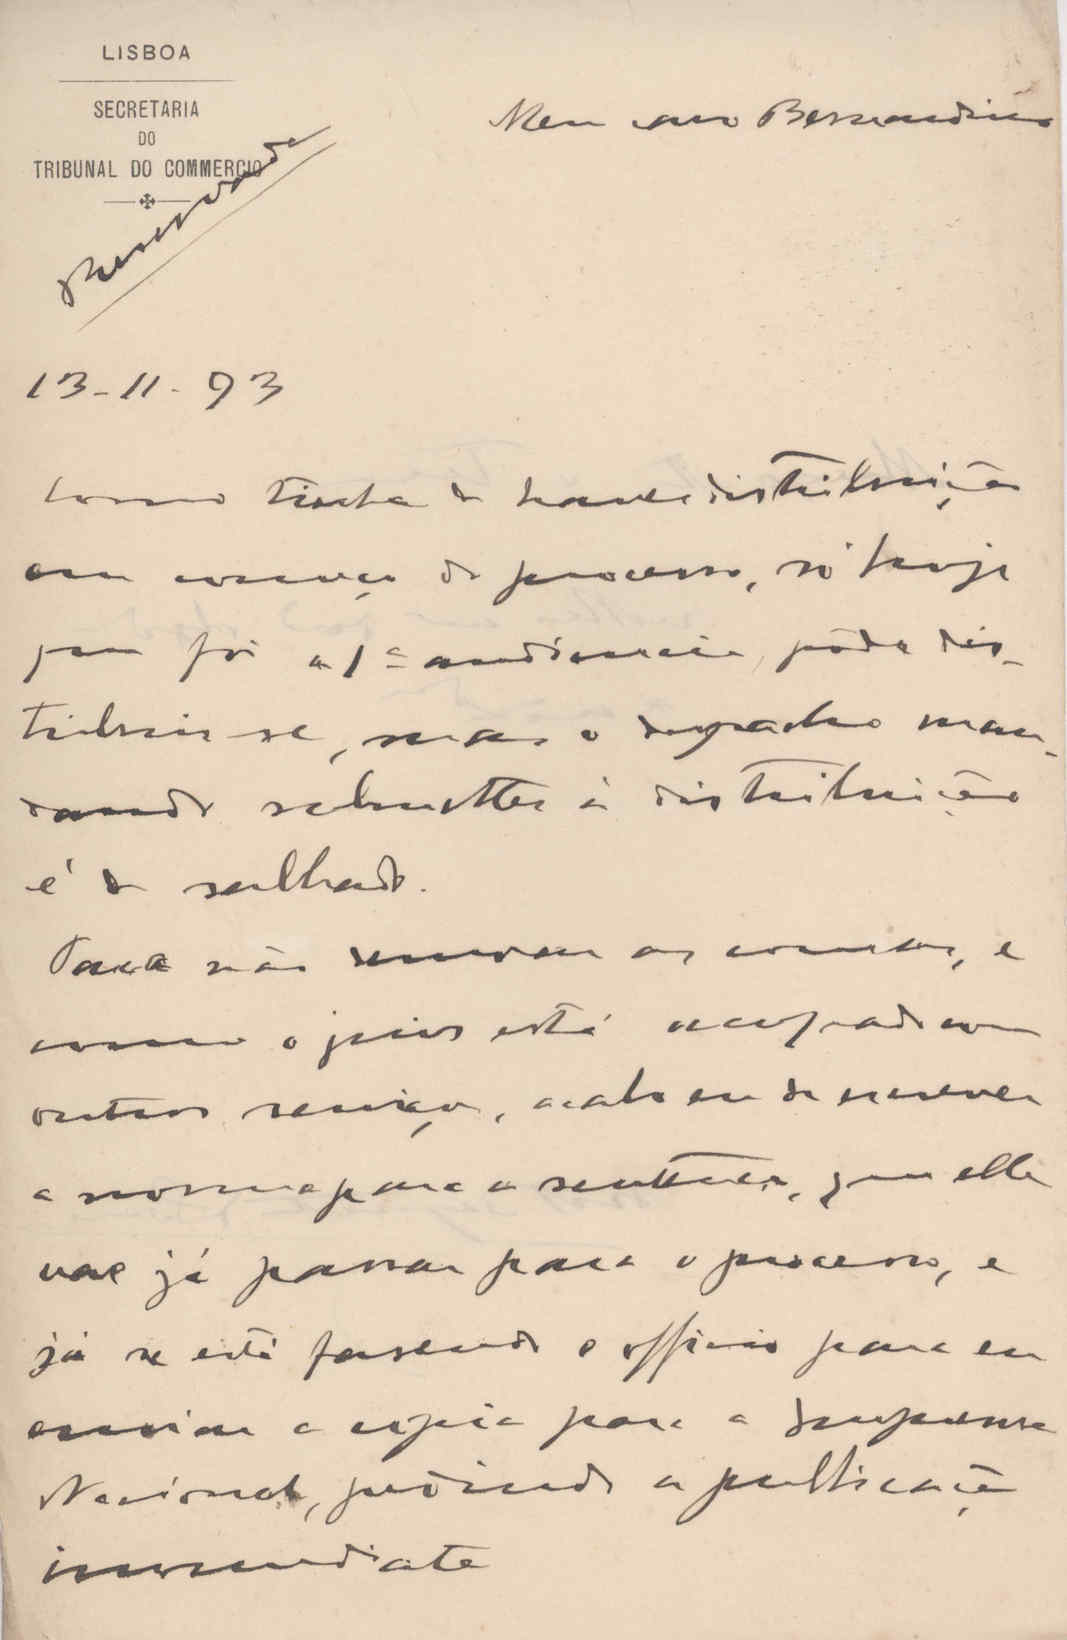 LISBOA
SECRETARIA
DO
TRIBUNAL DO COMMERCIO
Reservada
Meu caro Bernardino
13-11-93
Como tinha de haver distribuição
em começo de processo, só hoje
que foi a 1ª audiencia, póde dis-
tribuir-se, mas o despacho man-
dando submetter á distribuição
é de sabbado.
Para não demorar as cousas, e
como o juiz está occupado com
outros serviços, acabo eu de escrever
a norma para a sentença, que elle
vae já passar para o processo, e
já se está fasendo o officio para eu
enviar a copia para a Imprensa
Nacional, pedindo a publicação
immediata